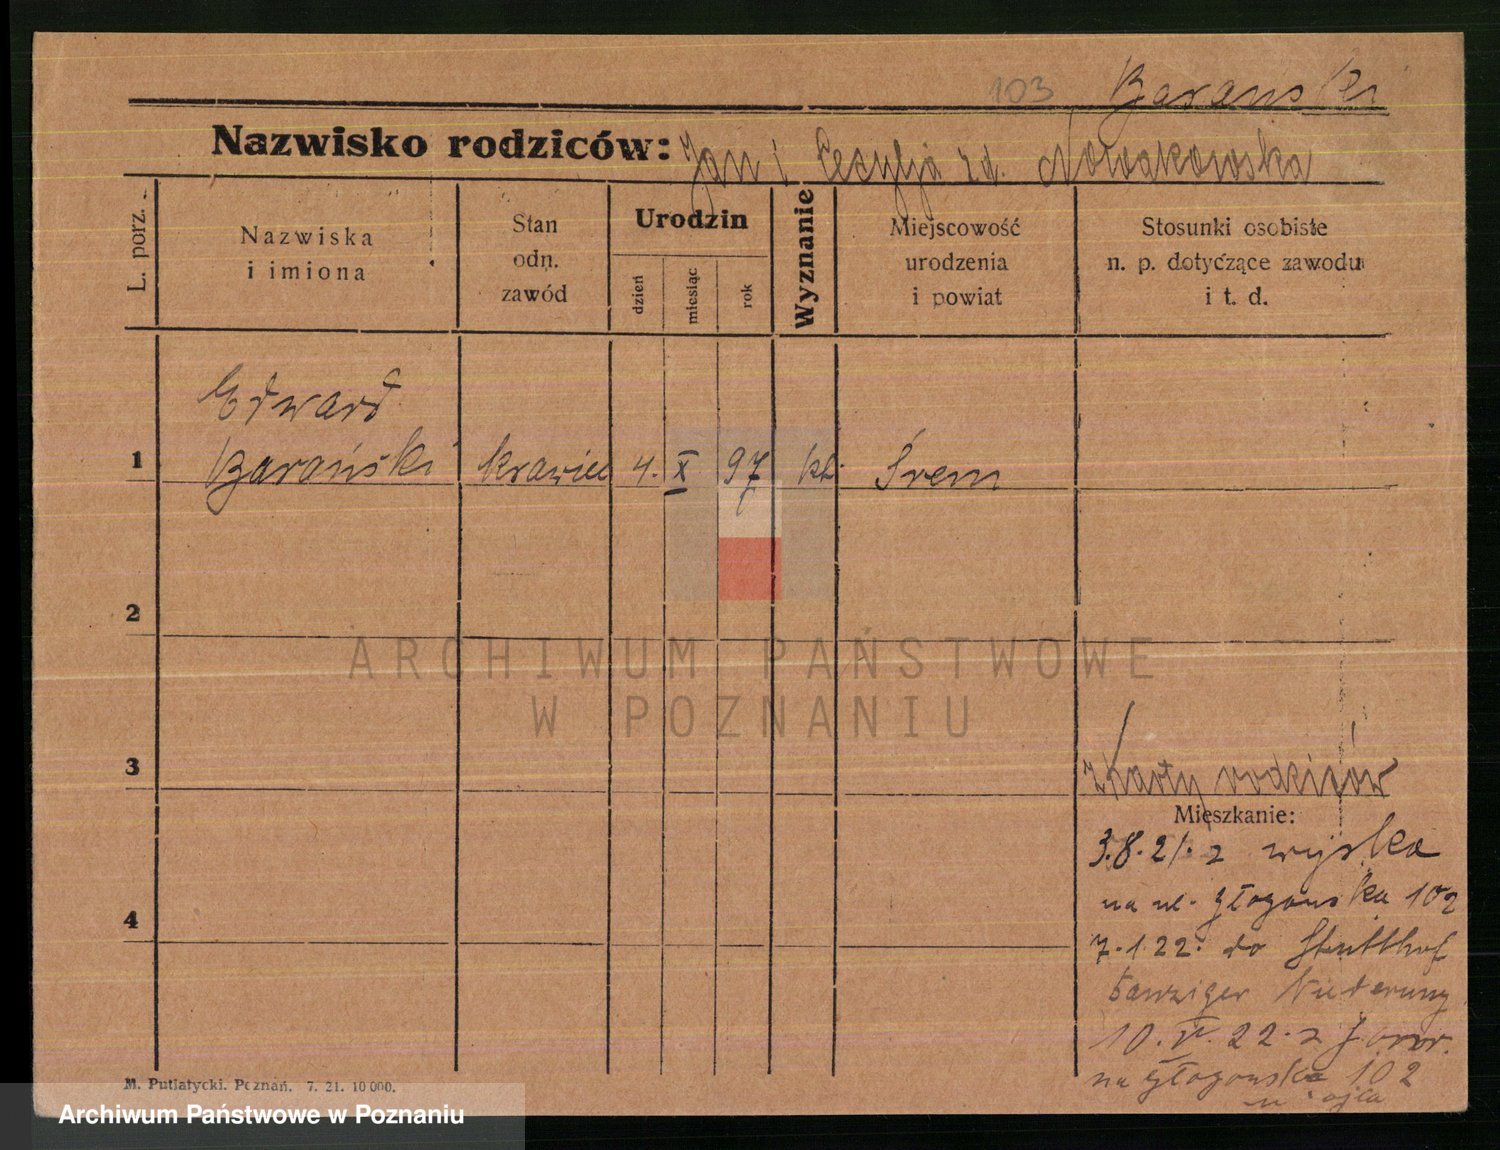 103 Barański
Nazwisko rodziców: Jan i Cecylja zd. Nowakowska
L. porz.
Nazwiska
i imiona
Stan
odn.
zawód
Urodzin
dzień
miesiąc
rok
Wyznanie
Miejscowość
urodzenia
i powiat
Stosunki osobiste
n. p. dotyczące zawodu
i t. d.
Edward
1 Barański krawiec 4. X 97 kt. Śrem
2
ARCHIWUM PAŃSTWOWE
W POZNANIU
3
z karty rodziców
Mieszkanie:
3.8.21. z wojska
na ul. Głogowska 102
4
7.1.22. do Stutthof
Danziger Niederung
10. V. 22. z
na Głogowska 102
u ojca
M. Putiatycki. Poznań. 7. 21. 10 000.
Archiwum Państwowe w Poznaniu